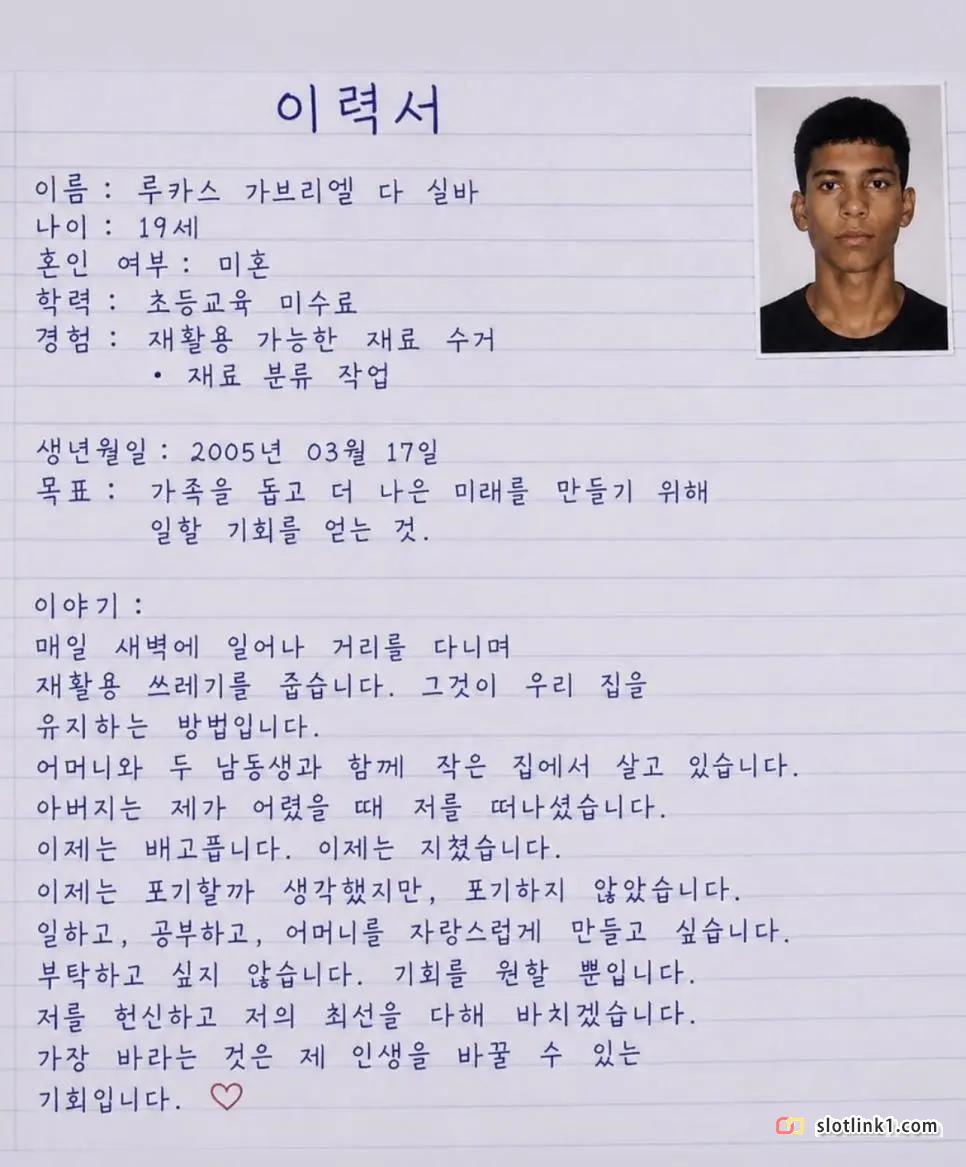 이력서
이름 : 루카스 가브리엘 다 실바
나이 : 19세
혼인 여부 : 미혼
학력 : 초등교육 미수료
경험 : 재활용 가능한 재료 수거
• 재료 분류 작업
생년월일 : 2005년 03월 17일
목표 : 가족을 돕고 더 나은 미래를 만들기 위해
일할 기회를 얻는 것.
이야기 :
매일 새벽에 일어나 거리를 다니며
재활용 쓰레기를 줍습니다. 그것이 우리 집을
유지하는 방법입니다.
어머니와 두 남동생과 함께 작은 집에서 살고 있습니다.
아버지는 제가 어렸을 때 저를 떠나셨습니다.
이제는 배고픕니다. 이제는 지쳤습니다.
이제는 포기할까 생각했지만, 포기하지 않았습니다.
일하고, 공부하고, 어머니를 자랑스럽게 만들고 싶습니다.
부탁하고 싶지 않습니다. 기회를 원할 뿐입니다.
저를 헌신하고 저의 최선을 다해 바치겠습니다.
가장 바라는 것은 제 인생을 바꿀 수 있는
기회입니다. ♡
slotlink1.com